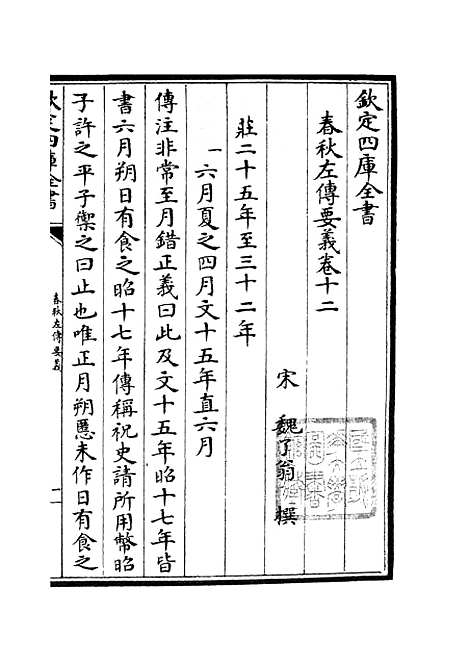 欽定四庫全書
春秋左傳要義卷十二
宋 魏了翁 撰
莊二十五年至三十二年
一六月夏之四月文十五年直六月
傳注非常至月錯正義曰此及文十五年昭十七年皆
書六月朔日有食之昭十七年傳稱祝史請所用幣昭
子許之平子禦之曰止也唯正月朔慝未作日有食之
欽定四庫全書
春秋左傳要義